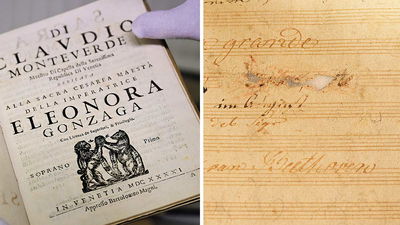 DI
CLAVDIO
MONTEVERDE
Maestro Di Capella della Serenissima
Republica Di Venetia
ALLA SACRA CESAREA MAESTÀ
DELLA IMPERATRICE
ELEONORA
GONZAGA
Con Licenza de Superiori, & Priuilegio.
SOPRANO Primo
IN VENETIA MDC XXXXI
Appresso Bartolomeo Magni.
grande
im August
del Sigr
van Beethoven